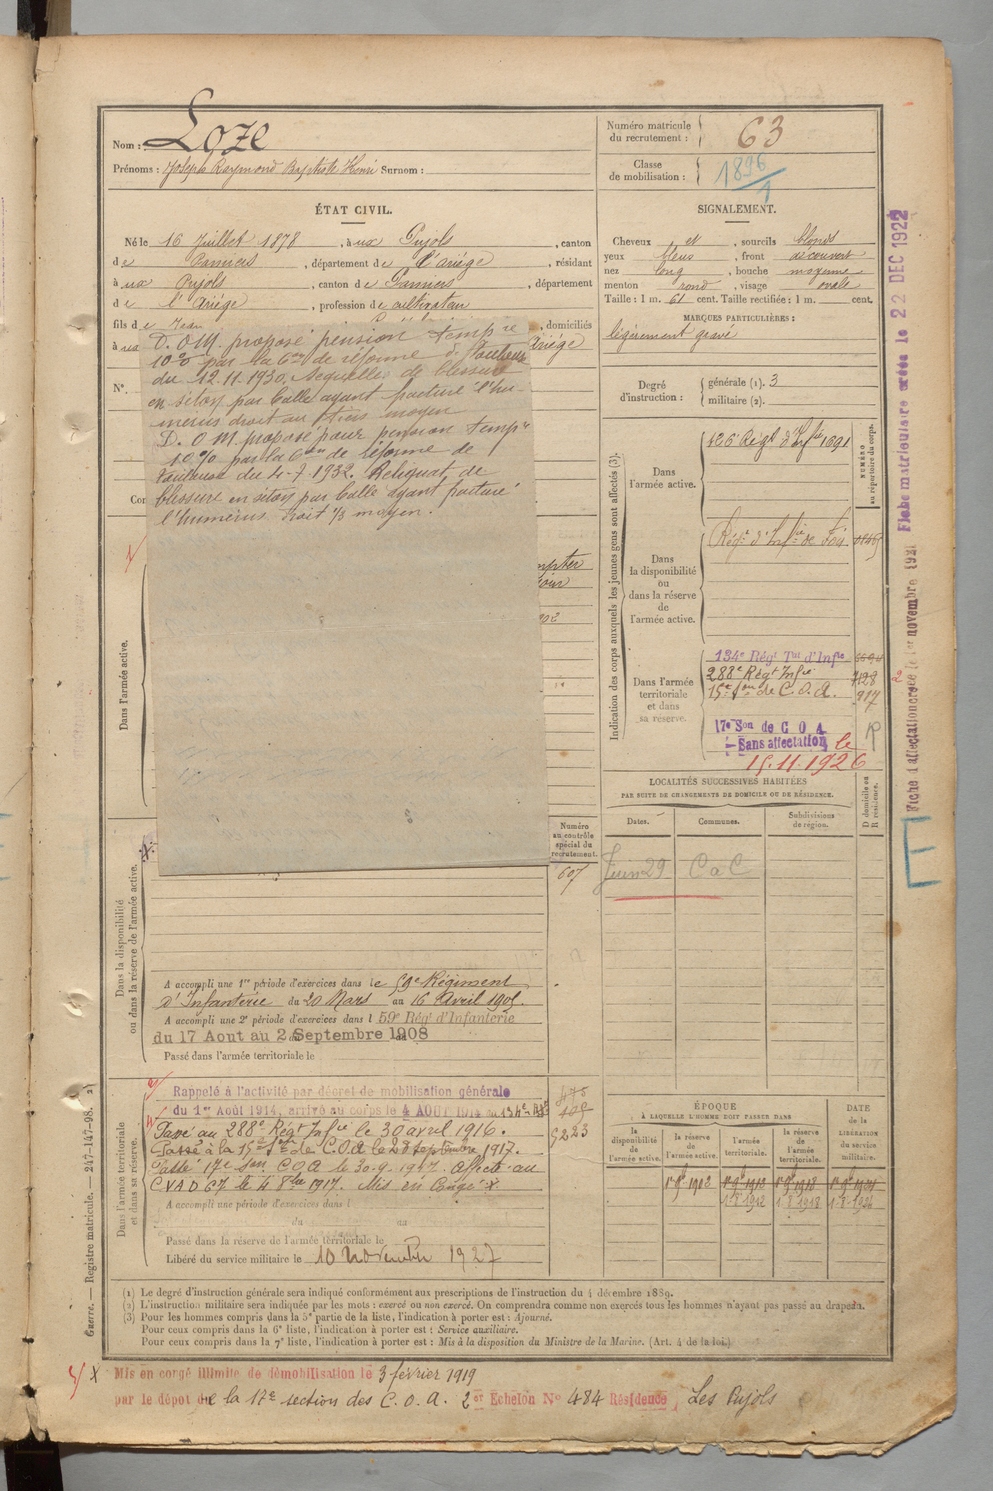 Nom : Loze
Prénoms : Joseph Raymond Baptiste Henri Surnom :
Numéro matricule
du recrutement : 63
Classe
de mobilisation : 1896/1
ÉTAT CIVIL.
Né le 16 Juillet 1878, à ux Pujols, canton
de Pamiers, département de l'Ariège, résidant
à ux Pujols, canton de Pamiers, département
de l'Ariège, profession de cultivateur
fils de Jean
, domiciliés
à ux
Ariège
D. OM. propose pension tempre
10% par la Con de réforme de Toulouse
du 12.11.1930. Sequelles de blessure
en séton par balle ayant fracturé l'hu-
merus droit au tiers moyen
D. OM. propose pour pension temp re
10% par la Con de réforme de
Toulouse du 4-7-1932. Reliquat de
blessure en séton par balle ayant fracturé
l'humérus droit 1/3 moyen.
N°.
Cor
SIGNALEMENT.
Cheveux et, sourcils blonds
yeux bleus, front découvert
nez long, bouche moyenne
menton rond, visage ovale
Taille : 1 m. 61 cent. Taille rectifiée : 1 m. cent.
MARQUES PARTICULIÈRES :
légèrement gravé
Degré
d'instruction :
générale (1). 3
militaire (2).
Indication des corps auxquels les jeunes gens sont affectés (3).
NUMÉRO
au répertoire du corps.
Dans
l'armée active.
126e Régt d'Infie 1691
Dans
la disponibilité
ou
dans la réserve
de
l'armée active.
Régt d'Infie de Foix
Dans l'armée
territoriale
et dans
sa réserve.
134e Régt Tal d'Infie
288e Régt Infie 7128
15e Son de C.O.A. 917
17e Son de C O A
Sans affectation le
15.11.1926
R
Fiche matriculaire créée le 22 DEC 1922
Fiche d'affectation créée le 1er novembre 1921
E
LOCALITÉS SUCCESSIVES HABITÉES
PAR SUITE DE CHANGEMENTS DE DOMICILE OU DE RÉSIDENCE.
D domicile ou
R résidence.
Dates.
Communes.
Subdivisions
de région.
Juin 29 CaC
Dans l'armée active.
Numéro
au contrôle
spécial du
recrutement.
607
Dans la disponibilité
ou dans la réserve de l'armée active.
A accompli une 1re période d'exercices dans le 59e Régiment
d'Infanterie du 20 Mars au 16 Avril 1905.
A accompli une 2e période d'exercices dans l 59e Régt d'Infanterie
du 17 Aout au 2 Septembre 1908
Passé dans l'armée territoriale le
Dans l'armée territoriale
et dans sa réserve.
Rappelé à l'activité par décret de mobilisation générale
du 1er Août 1914, arrivé au corps le 4 AOUT 1914 au 134e
Passé au 288e Régt Infie le 30 avril 1916.
Passé à la 15e Son de C.O.A le 28 septembre 1917.
Passé 17e Son C.O.A le 30.9.1917. Affecté au
C.V.A.D 67 le 4 8bre 1917. Mis en Congé X
5223
A accompli une période d'exercices dans l
du au
Passé dans la réserve de l'armée territoriale le
Libéré du service militaire le 10 novembre 1927
ÉPOQUE
À LAQUELLE L'HOMME DOIT PASSER DANS
DATE
de la
LIBÉRATION
du service
militaire.
la
disponibilité
de
l'armée active.
la réserve
de
l'armée active.
l'armée
territoriale.
la réserve
de
l'armée
territoriale.
1-8-1912 1 8 1918 1-8-1924
Guerre. — Registre matricule. — 247-147-98.
(1) Le degré d'instruction générale sera indiqué conformément aux prescriptions de l'instruction du 4 décembre 1889.
(2) L'instruction militaire sera indiquée par les mots : exercé ou non exercé. On comprendra comme non exercés tous les hommes n'ayant pas passé au drapeau.
(3) Pour les hommes compris dans la 5e partie de la liste, l'indication à porter est : Ajourné.
Pour ceux compris dans la 6e liste, l'indication à porter est : Service auxiliaire.
Pour ceux compris dans la 7e liste, l'indication à porter est : Mis à la disposition du Ministre de la Marine. (Art. 4 de la loi.)
X Mis en congé illimité de démobilisation le 3 février 1919
par le dépôt de la 17e section des C.O.A. 2e Echelon No 484 Résidence Les Pujols